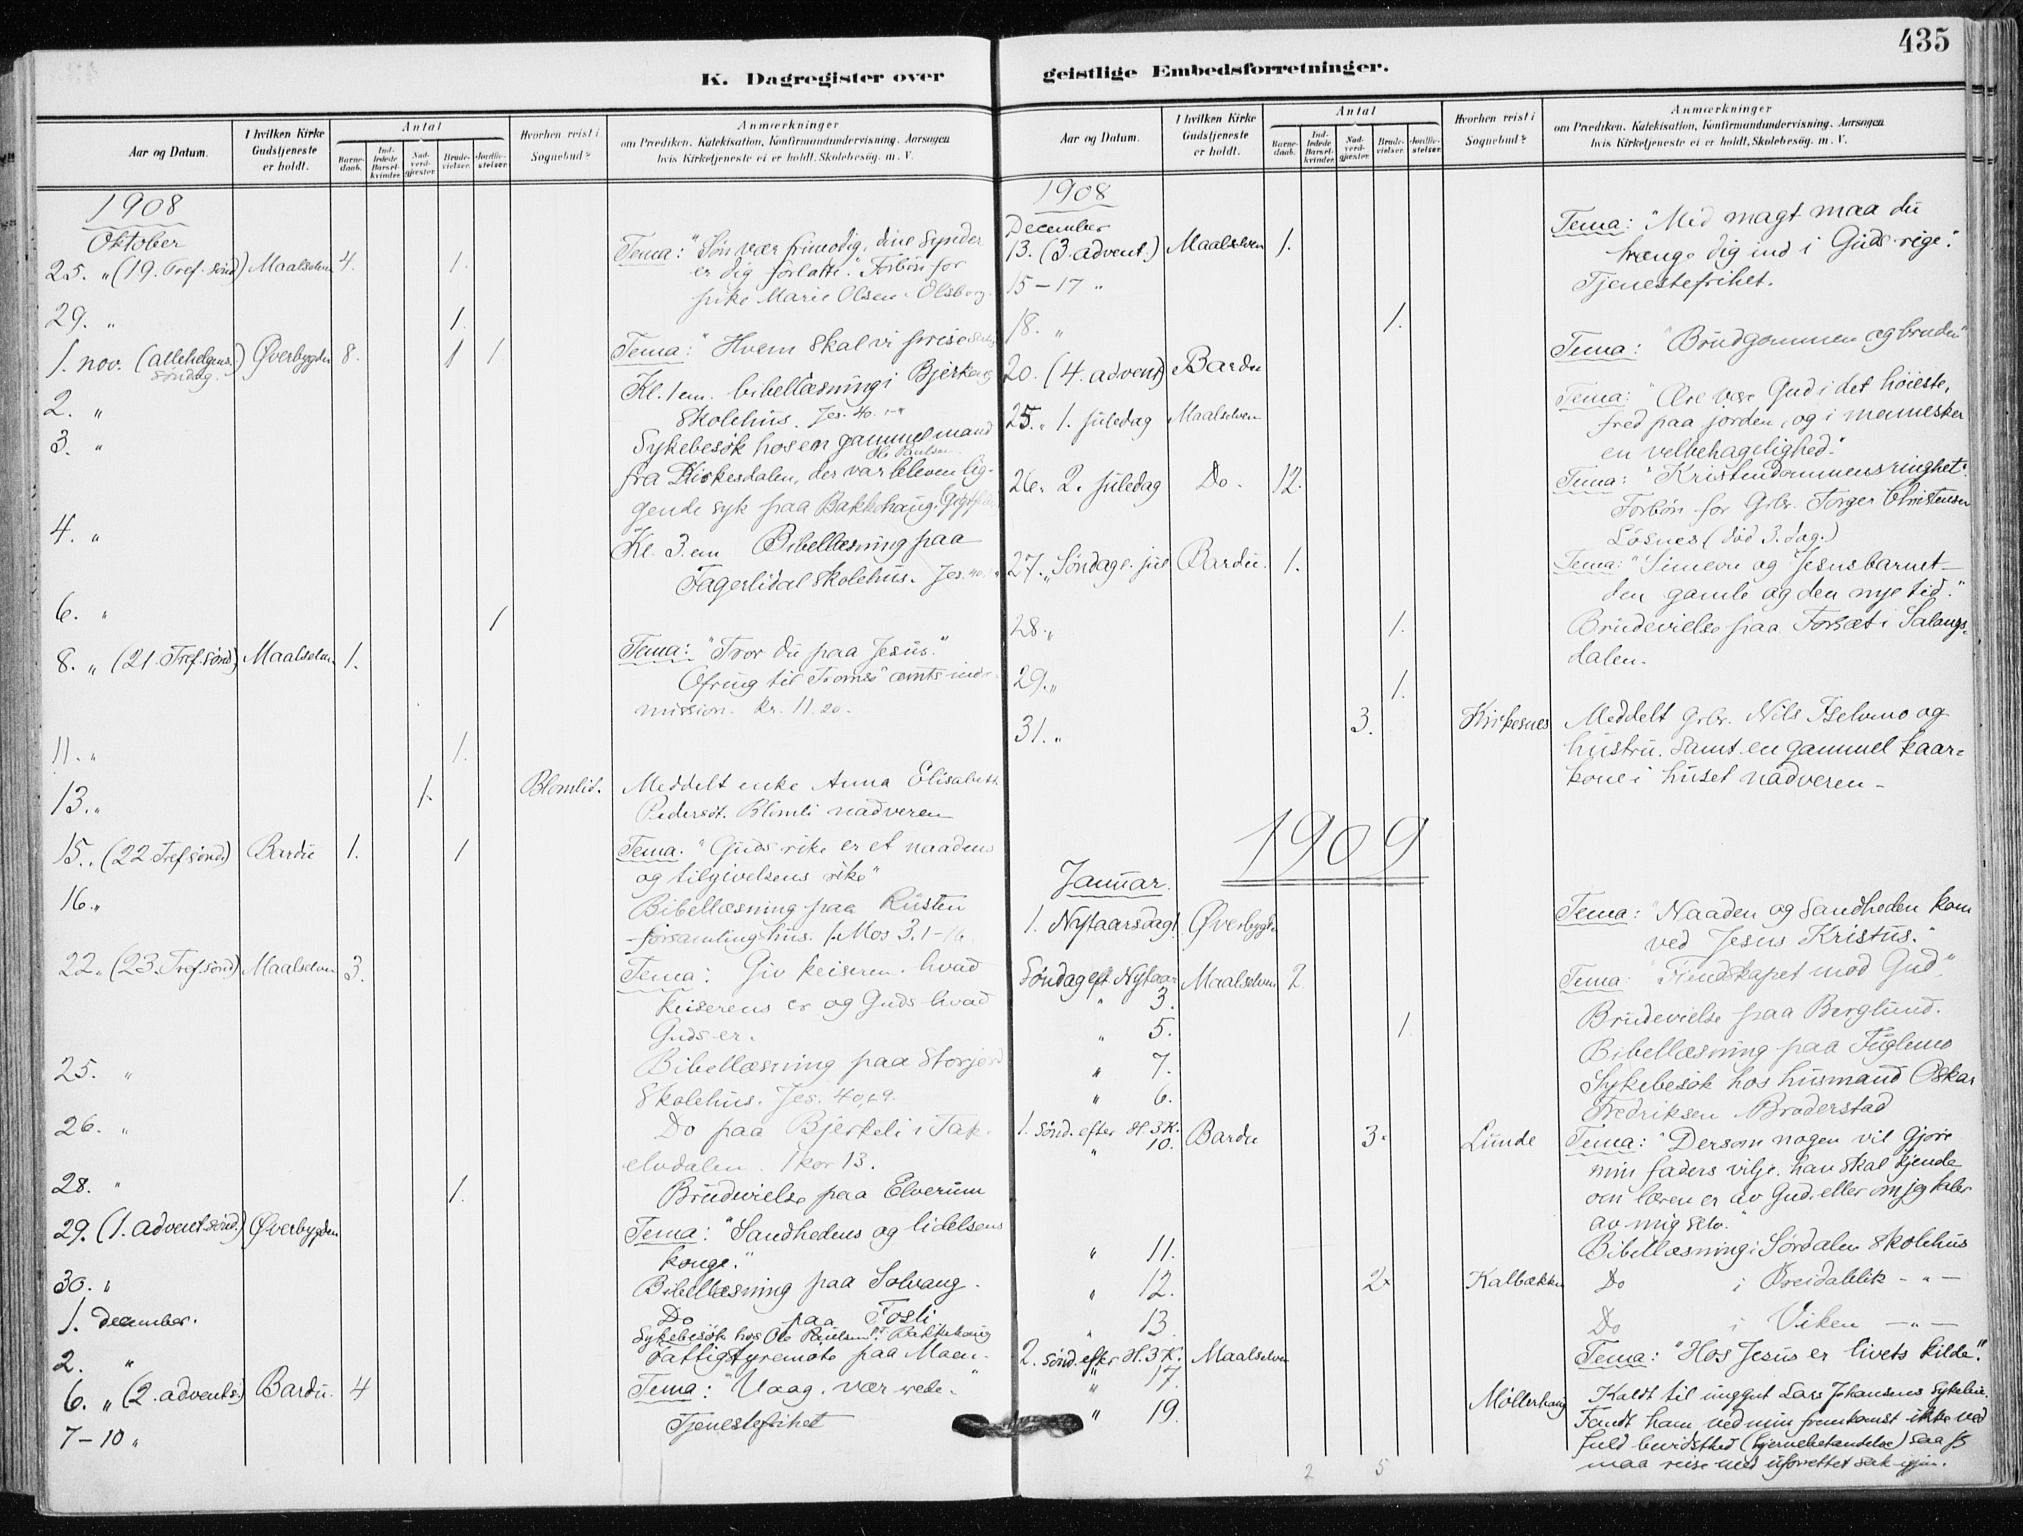 435
K. Dagregister over
geistlige Embedsforretninger.
Aar og Datum.
I hvilken Kirke Gudstjeneste er holdt.
Antal
Barnedaab.
Indledede Barselkvinder.
Nadverdgjæster.
Brudevielser.
Jordfæstelser.
Hvorhen reist i Sognebud?
Anmærkninger
om Prædiken, Katekisation, Konfirmandundervisning. Aarsagen
hvis Kirketjeneste ei er holdt. Skolebesøg. m. V.
1908
Oktober
25. " (19. Tref. sønd) Maalselven 4. 1. Tema: "Søn vær frimodig, dine synder
er dig forlatte." Forbøn for
pike Marie Olsen Olsborg.
29. " 1.
1. nov. (allehelgens søndag.) Øverbygden 8. 1 1 Tema: "Hvem skal vi prise
2. " Kl. 1 em. bibellæsning i Bjerkeng
skolehus. Jes. 40.
3. " Sykebesøk hos en gammel mand
Ole Paulsen
fra Kirkesdalen, der var bleven lig-
gende syk paa Bakkehaug.
4. " Kl. 3 em Bibellæsning paa
Fagerlidal skolehus. Jes. 40.
6. " 1
8. " (21. Tref. sønd) Maalselven. 1. Tema: "Tror du paa Jesus."
Ofring til Tromsø amts indr-
mission. kr. 11.20.
11. " 1.
13. " 1. Blomlid. Meddelt enke Anna Elisabeth
Pedersdt. Blomli nadveren
15. " (22 Tref sønd) Bardu 1. 1 Tema. "Guds rike er et naadens
og tilgivelsens rike"
16. " Bibellæsning paa Rusten
forsamlingshus. 1. Mos 3. 1-16.
22. " (23. Tref. sønd) Maalselven 3. Tema: Giv keiseren hvad
keiserens er og Guds hvad
Guds er.
25. " Bibellæsning paa Storjord
Skolehus. Jes. 40,29.
26. " Do paa Bjerkeli i Tak-
elvdalen. 1 kor 13.
28. " 1. Brudevielse paa Elverum
29. (1. advent sønd.) Øverbygden Tema: "Sandhedens og lidelsens
konge."
30. " Bibellæsning paa Solvang.
1. december. Do paa Fosli
Sykebesøk hos Ole Paulsen Bakkehaug
2. " Fattigstyremøte paa Moen.
6. " (2. advents.) Bardu. 4 Tema: "Vaag, vær rede."
7-10 " Tjenestefrihet
Aar og Datum.
I hvilken Kirke Gudstjeneste er holdt.
Antal
Barnedaab.
Indledede Barselkvinder.
Nadverdgjæster.
Brudevielser.
Jordfæstelser.
Hvorhen reist i Sognebud?
Anmærkninger
om Prædiken, Katekisation, Konfirmandundervisning. Aarsagen
hvis Kirketjeneste ei er holdt. Skolebesøg. m. V.
1908
December
13. (3. advent.) Maalselven 1. Tema: "Med magt maa du
trænge dig ind i Guds rige."
15-17 " Tjenestefrihet.
18. " 1.
20. (4. advent) Bardu Tema: "Brudgommen og bruden"
25. " 1. juledag Maalselven Tema: "Ære være Gud i det høieste,
fred paa jorden, og i mennesker
en velbehagelighed."
26. 2. juledag Do. 12. Tema: "Kristendommens ringhet."
Forbøn for Grbr. Torger Christensen
Løsnes (død 3. dag.)
27. " Søndag e. jul Bardu. 1. Tema: "Simeon og Jesusbarnet -
den gamle og den nye tid."
28. " 1. Brudevielse paa Forset i Salangs-
dalen.
29. " 1.
31. " 3. Kirkesnes Meddelt Grbr. Nils Iselvmo og
hustru. samt en gammel kaar-
kone i huset nadveren -
1909
Januar.
1. Nytaarsdag Øverbygden Tema: "Naaden og Sandheden kom
ved Jesus Kristus."
Søndag eft Nytaar Maalselven 2. Tema: "Fiendskapet mod Gud."
" 3.
" 5. 1. Brudevielse paa Berglund.
" 7. Bibellæsning paa Fuglemo
" 6. Sykebesøk hos husmand Oskar
Fredriksen Broderstad
1. sønd. efter H. 3 K. " 10. Bardu 3. Lunde Tema: "Dersom nogen vil gjøre
min faders vilje, han skal kjende
om læren er av Gud, eller om jeg taler
av mig selv."
" 11. Bibellæsning i Sørdalen skolehus
" 12. 2. Kalbækken Do i Øveidablik - " -
" 13 Do i Viken - " -
2. sønd. efter H. 3 K. Maalselven Tema: "Hos Jesus er livets kilde."
" 17.
" 19. Møllerhaug Kaldt til unggut Lars Johansens sykeleie.
Fandt ham ved min fremkomst ikke ved
fuld bevidsthed (hjernebetændelse) saa jeg
maa reise med uforrettet sak igjen.
2 5